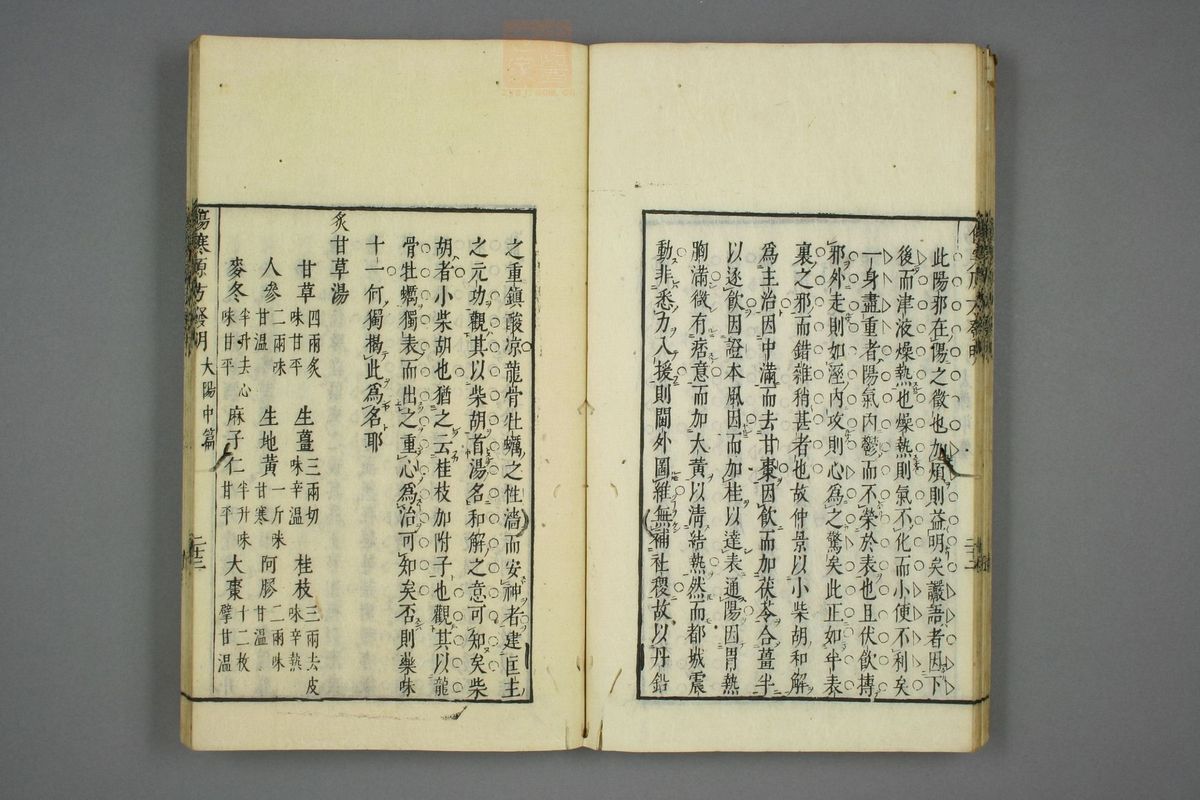 此陽邪在傷之徵也加煩則益明矣讝語者因下
後而津液燥熱也燥熱則氣不化而小便不利矣
一身盡重者陽氣内鬱而不榮於表也且伏飲摶
邪外走則如溼内攻則心爲之驚矣此正如半表
裏之邪而錯雜稍甚者也故仲景以小柴胡和解
爲主治因中滿而去甘棗因飲而加茯苓合薑半
以逐飲因證本風因而加桂以達表通陽因胃熱
胸滿微有痞意而加大黄以清結熱然而都城震
動非悉力入援則閫外圖維無補社稷故以丹鉛
之重鎮酸凉龍骨牡蠣之性濇而安神者建匡主
之元功觀其以柴胡首湯名和解之意可知矣柴
胡者小柴胡也猶之云桂枝加附子也觀其以龍
骨牡蠣獨表而出之重心爲治可知矣否則藥味
十一何獨揭此爲名耶
炙甘草湯
甘草四兩炙味甘平 生薑三兩切味辛溫 桂枝三兩去皮味辛熱
人參二兩味甘溫 生地黄一斤味甘寒 阿膠二兩味甘溫
麥冬半升去心味甘平 麻子仁半升味甘平 大棗十二枚擘甘溫
傷寒源方發明 大陽中篇 二十三